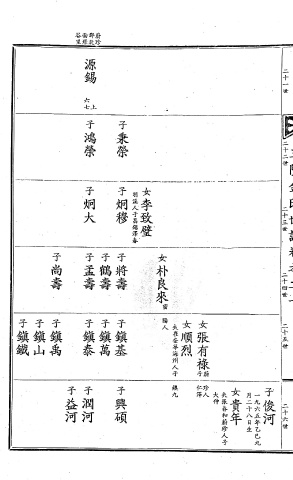 二十一世
源錫
六七上
二十二世
子秉榮
子鴻榮
二十三世
女李致璧
子炯穆
子炯大
二十四世
女朴良來
子將壽
子鶴壽
子孟壽
子尚壽
二十五世
女張有祿
女順烈
子鎮基
子鎮萬
子鎮泰
子鎮禹
子鎮山
子鎮鐵
二十六世
子俊河
一九六五年乙巳元
月二十八日生
女貴年
子興碩
子潤河
子益河